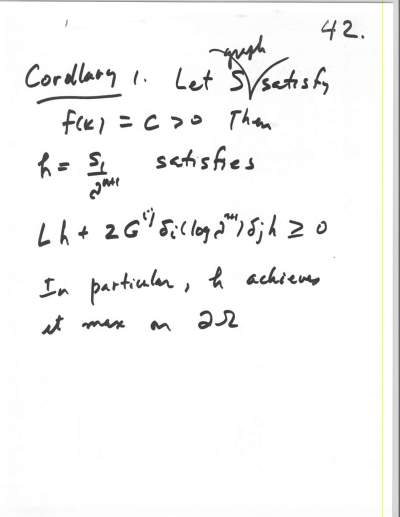 42.
Corollary 1. Let S graph satisfy
f(κ) = C > 0 Then
h = S₁/ν^{n+1} satisfies
L h + 2 G^{ij} δ_i (log ν^{n+1}) δ_j h ≥ 0
In particular, h achieves
it max on ∂Ω